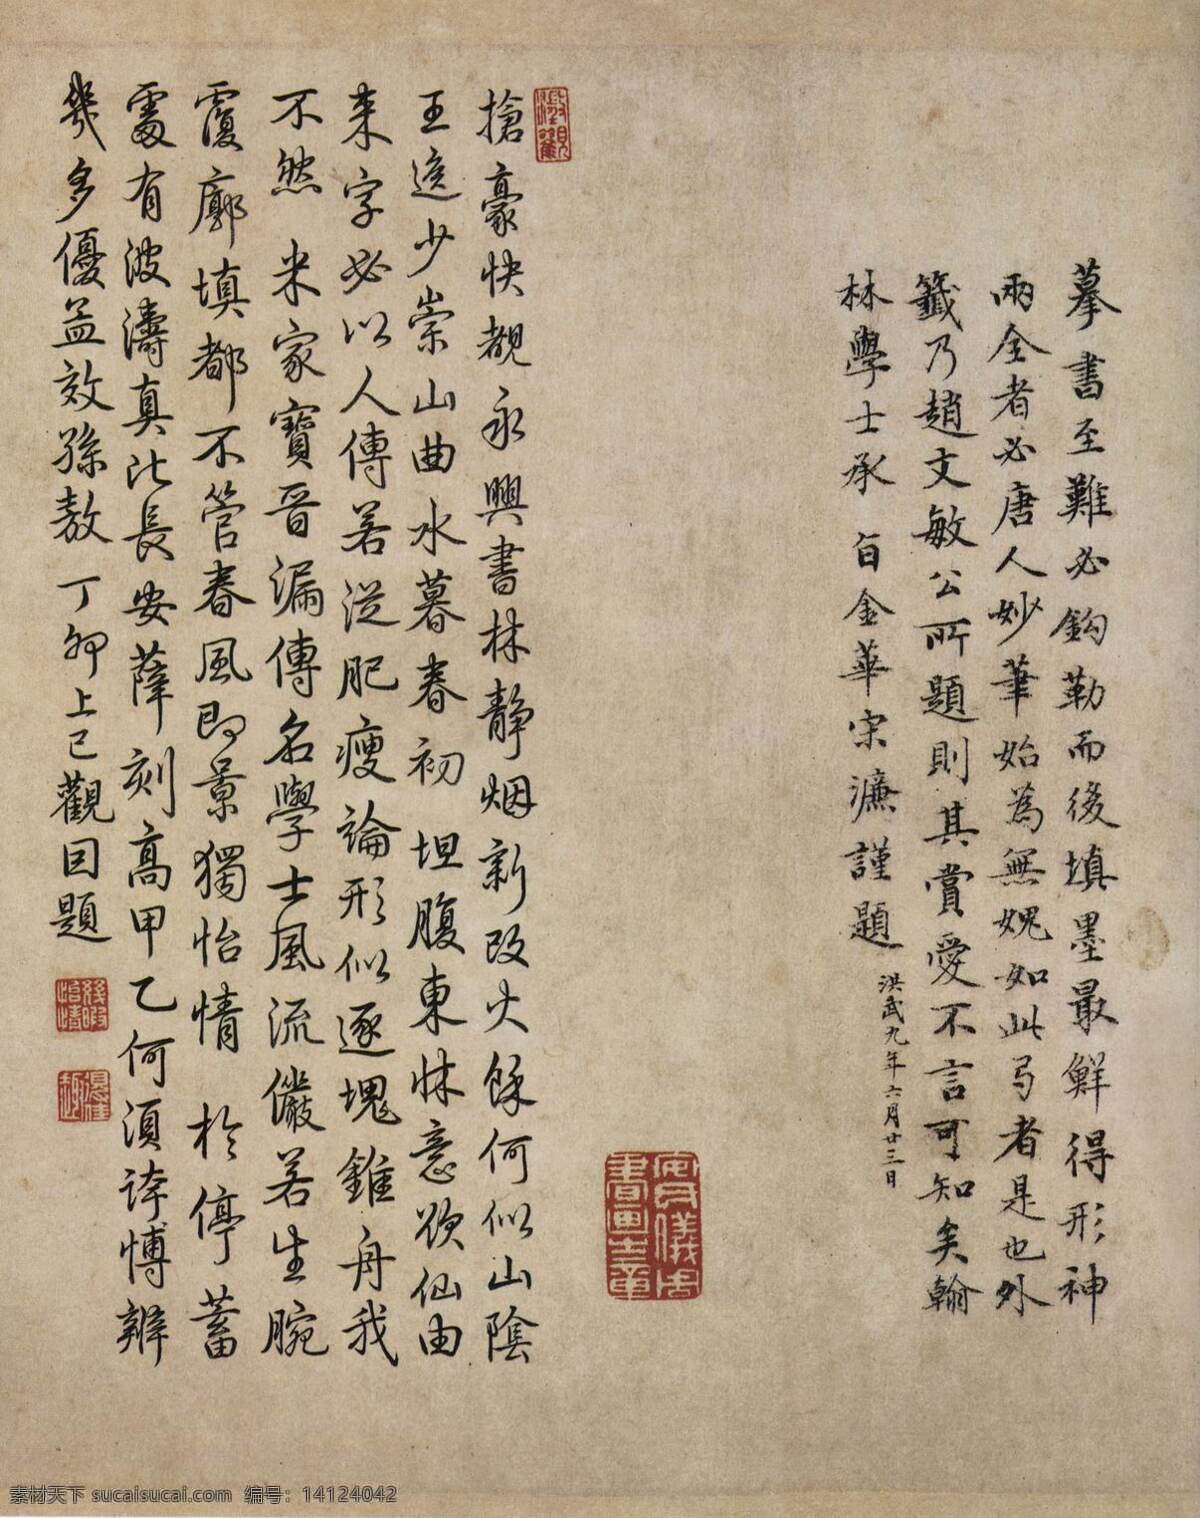 摹書至難必鈎勒而後填墨最鮮得形神
兩全者必唐人妙筆始為無媿如此弓者是也外
籤乃趙文敏公所題則其賞愛不言可知矣翰
林學士承旨金華宋濂謹題
洪武九年六月廿三日
搶豪快覩永興書林静烟新改火餘何似山陰
王逸少崇山曲水暮春初坦腹東牀意欲仙由
来字必以人傳若從肥瘦論形似逐塊錐舟我
不然米家寶晉漏傳名學士風流儼若生腕
覆廓填都不管春風即景獨怡情於停蓄
處有波濤真比長安薛刻高甲乙何須誇博辨
幾多優孟效孫敖丁卯上巳觀因題
素材天下 sucaisucai.com 编号：14124042